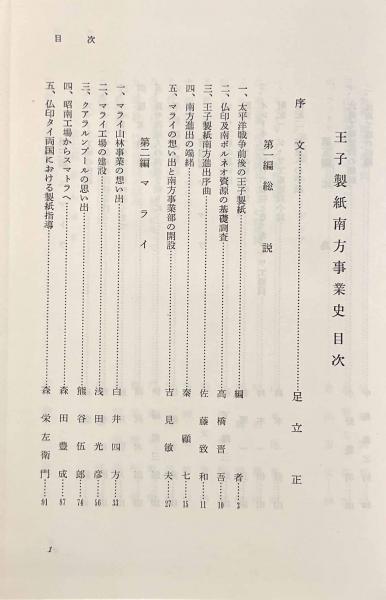 目次
王子製紙南方事業史 目次
序文……………足立正
第一編 総説
一、太平洋戦争前後の王子製紙……………編者…3
二、仏印及南ボルネオ資源の基礎調査……………高橋晋吾…10
三、王子製紙南方進出序曲……………佐藤致和…11
四、南方進出の端緒……………秦顧七…15
五、マライの想い出と南方事業部の開設……………吉見敏夫…27
第二編 マライ
一、マライ山林事業の想い出……………白井四方…33
二、マライ工場の建設……………浅田光彦…56
三、クアラルンプールの思い出……………熊谷伍郎…76
四、昭南工場からスマトラへ……………森田豊成…87
五、仏印タイ両国における製紙指導……………森栄左衛門…91
1